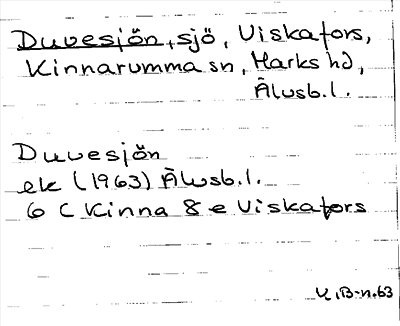 Duvesjön, sjö, Viskafors,
Kinnarumma sn, Marks hd,
Älvsb.l.
Duvesjön
ek (1963) Älvsb.l.
6 C Kinna 8 e Viskafors